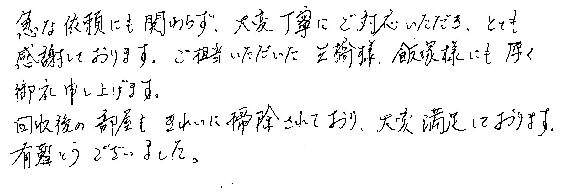 急な依頼にも関わらず、大変丁寧にご対応いただき、とても
感謝しております。ご担当いただいた 様、飯塚様にも厚く
御礼申し上げます。
回収後の部屋もきれいに掃除されており、大変満足しております。
有難とうございました。